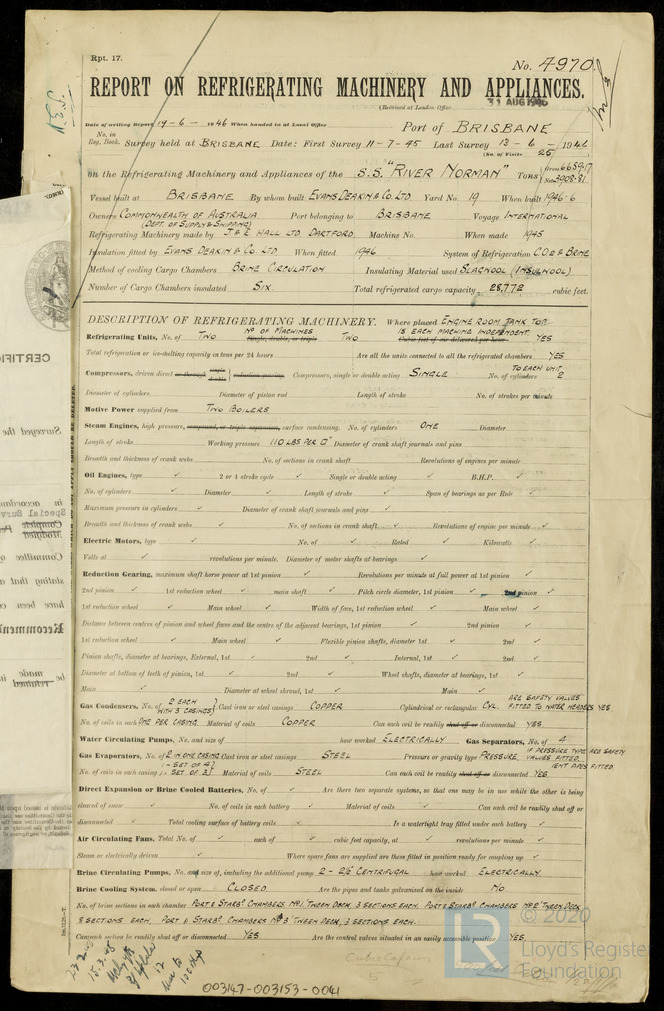 Rpt. 17.
No. 4970.
REPORT ON REFRIGERATING MACHINERY AND APPLIANCES.
(Received at London Office
31 AUG 1946
Date of writing Report 19-6-1946 When handed in at Local Office Port of BRISBANE
No. in Reg. Book. Survey held at BRISBANE Date: First Survey 11-7-45 Last Survey 13-6-1946
(No. of Visits 25)
on the Refrigerating Machinery and Appliances of the S.S. "RIVER NORMAN" Tons Gross 6659.17 Net 3908.81
Vessel built at BRISBANE By whom built EVANS DEAKIN & CO. LTD Yard No. 19 When built 1946-6
Owners COMMONWEALTH OF AUSTRALIA (DEPT. OF SUPPLY & SHIPPING) Port belonging to BRISBANE Voyage INTERNATIONAL
Refrigerating Machinery made by J & E HALL LTD. DARTFORD. Machine No. When made 1945
Insulation fitted by EVANS DEAKIN & CO. LTD When fitted 1946 System of Refrigeration CO2 & BRINE
Method of cooling Cargo Chambers BRINE CIRCULATION Insulating Material used SLAGWOOL (INSULWOOL)
Number of Cargo Chambers insulated SIX. Total refrigerated cargo capacity 28,772 cubic feet.
DESCRIPTION OF REFRIGERATING MACHINERY. Where placed ENGINE ROOM TANK TOP
Refrigerating Units, No. of TWO NO OF MACHINES Single, double, or triple TWO IS EACH MACHINE INDEPENDENT. Cubic feet of air delivered per hour YES
Total refrigeration or ice-melting capacity in tons per 24 hours Are all the units connected to all the refrigerated chambers YES
Compressors, driven direct or through single double reduction gearing. Compressors, single or double acting SINGLE No. of cylinders TO EACH UNIT 2
Diameter of cylinders Diameter of piston rod Length of stroke No. of strokes per minute
Motive Power supplied from TWO BOILERS
Steam Engines, high pressure, compound, or triple expansion, surface condensing. No. of cylinders ONE Diameter
Length of stroke Working pressure 110 LBS PER □" Diameter of crank shaft journals and pins
Breadth and thickness of crank webs No. of sections in crank shaft Revolutions of engines per minute
Oil Engines, type ✓ 2 or 4 stroke cycle ✓ Single or double acting ✓ B.H.P. ✓
No. of cylinders ✓ Diameter ✓ Length of stroke ✓ Span of bearings as per Rule ✓
Maximum pressure in cylinders ✓ Diameter of crank shaft journals and pins ✓
Breadth and thickness of crank webs ✓ No. of sections in crank shaft ✓ Revolutions of engine per minute ✓
Electric Motors, type ✓ No. of ✓ Rated ✓ Kilowatts ✓
Volts at ✓ revolutions per minute. Diameter of motor shafts at bearings ✓
Reduction Gearing, maximum shaft horse power at 1st pinion ✓ Revolutions per minute at full power at 1st pinion ✓
2nd pinion ✓ 1st reduction wheel ✓ main shaft ✓ Pitch circle diameter, 1st pinion ✓ 2nd pinion ✓
1st reduction wheel ✓ Main wheel ✓ Width of face, 1st reduction wheel ✓ Main wheel ✓
Distance between centres of pinion and wheel faces and the centre of the adjacent bearings, 1st pinion ✓ 2nd pinion ✓
1st reduction wheel ✓ Main wheel ✓ Flexible pinion shafts, diameter 1st ✓ 2nd ✓
Pinion shafts, diameter at bearings, External, 1st ✓ 2nd ✓ Internal, 1st ✓ 2nd ✓
Diameter at bottom of teeth of pinion, 1st ✓ 2nd ✓ Wheel shafts, diameter at bearings, 1st ✓
Main ✓ Diameter at wheel shroud, 1st ✓ Main ✓
Gas Condensers, No. of 2 EACH WITH 3 CASINGS Cast iron or steel casings COPPER Cylindrical or rectangular CYL. ARE SAFETY VALVES FITTED TO WATER HEADERS YES
No. of coils in each ONE PER CASING Material of coils COPPER Can each coil be readily shut off or disconnected YES
Water Circulating Pumps, No. and size of how worked ELECTRICALLY Gas Separators, No. of 4
Gas Evaporators, No. of 2 IN ONE CASING Cast iron or steel casings STEEL Pressure or gravity type PRESSURE IF PRESSURE TYPE ARE SAFETY VALVES FITTED.
No. of coils in each casing 1 - SET OF 4 1 - SET OF 3 Material of coils STEEL Can each coil be readily shut off or disconnected YES
Direct Expansion or Brine Cooled Batteries, No. of ✓ Are there two separate systems, so that one may be in use while the other is being
cleared of snow ✓ No. of coils in each battery ✓ Material of coils ✓ Can each coil be readily shut off or
disconnected ✓ Total cooling surface of battery coils ✓ Is a watertight tray fitted under each battery ✓
Air Circulating Fans, Total No. of ✓ each of ✓ cubic feet capacity, at ✓ revolutions per minute ✓
Steam or electrically driven ✓ Where spare fans are supplied are these fitted in position ready for coupling up ✓
Brine Circulating Pumps, No. and size of, including the additional pump 2 - 2½" CENTRIFUGAL how worked ELECTRICALLY.
Brine Cooling System, closed or open CLOSED. Are the pipes and tanks galvanised on the inside NO.
No. of brine sections in each chamber PORT & STARBD. CHAMBERS No1. TWEEN DECK, 3 SECTIONS EACH. PORT & STARBD CHAMBERS No 2 TWEEN DECK
8 SECTIONS EACH. PORT & STARBD. CHAMBERS No 3 TWEEN DECK, 3 SECTIONS EACH.
Can each section be readily shut off or disconnected YES Are the control valves situated in an easily accessible position YES.
003147-003153-0041
© 2020
Lloyd's Register
Foundation
LR